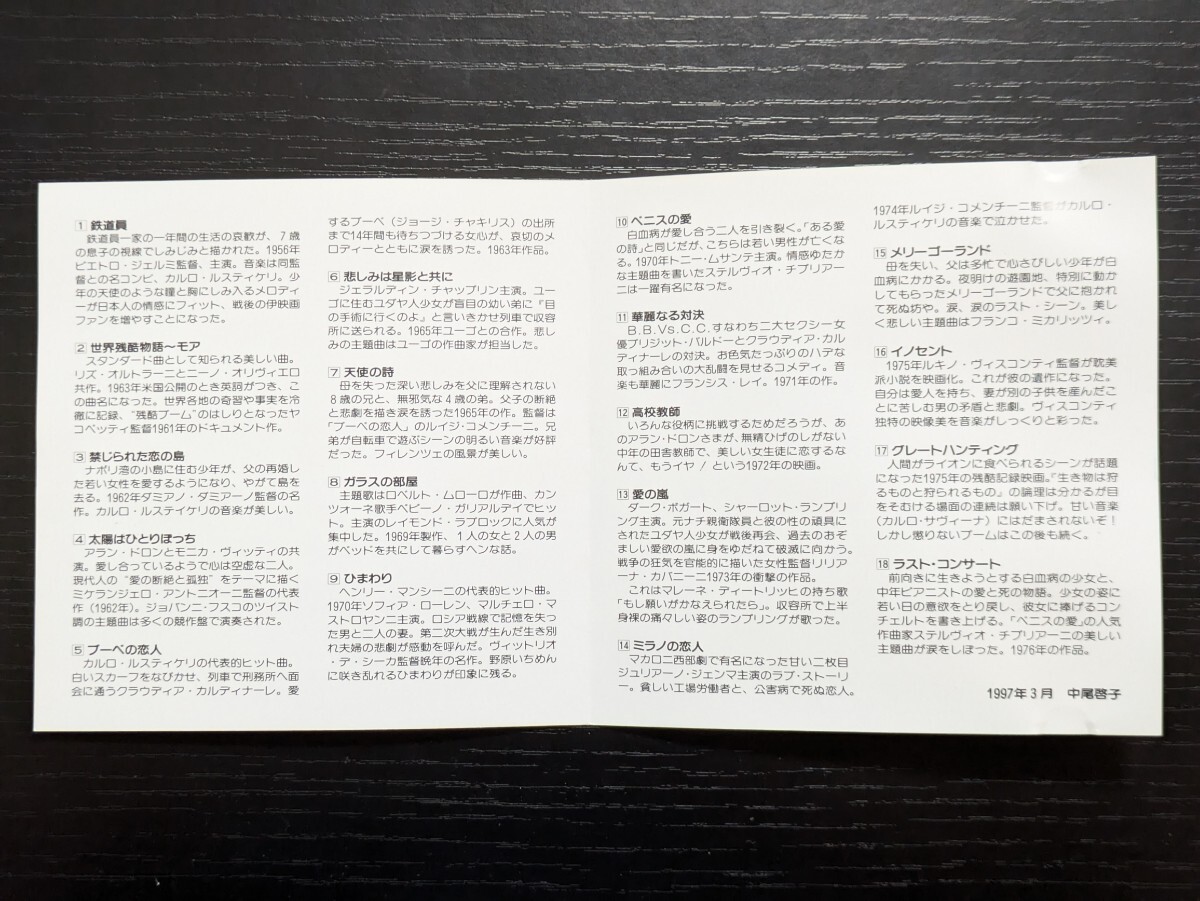 1 鉄道員
鉄道員一家の一年間の生活の哀歓が、7歳
の息子の視線でしみじみと描かれた。1956年
ピエトロ・ジェルミ監督、主演。音楽は同監
督との名コンビ、カルロ・ルスティケリ。少
年の天使のような瞳と胸にしみ入るメロディ
ーが日本人の情感にフィット、戦後の伊映画
ファンを増やすことになった。
2 世界残酷物語〜モア
スタンダード曲として知られる美しい曲。
リズ・オルトラーニとニーノ・オリヴィエロ
共作。1963年米国公開のとき英詞がつき、こ
の曲名になった。世界各地の奇習や事実を冷
徹に記録、“残酷ブーム”のはしりとなったヤ
コペッティ監督1961年のドキュメント作。
3 禁じられた恋の島
ナポリ湾の小島に住む少年が、父の再婚し
た若い女性を愛するようになり、やがて島を
去る。1962年ダミアノ・ダミアーノ監督の名
作。カルロ・ルスティケリの音楽が美しい。
4 太陽はひとりぼっち
アラン・ドロンとモニカ・ヴィッティの共
演。愛し合っているようで心は空虚な二人。
現代人の“愛の断絶と孤独”をテーマに描く
ミケランジェロ・アントニオーニ監督の代表
作（1962年）。ジョバンニ・フスコのツイスト
調の主題曲は多くの競作盤で演奏された。
5 ブーベの恋人
カルロ・ルスティケリの代表的ヒット曲。
白いスカーフをなびかせ、列車で刑務所へ面
会に通うクラウディア・カルディナーレ。愛
するブーベ（ジョージ・チャキリス）の出所
まで14年間も待ちつづける女心が、哀切のメ
ロディーとともに涙を誘った。1963年作品。
6 悲しみは星影と共に
ジェラルディン・チャップリン主演。ユー
ゴに住むユダヤ人少女が盲目の幼い弟に「目
の手術に行くのよ」と言いきかせ列車で収容
所に送られる。1965年ユーゴとの合作。悲し
みの主題曲はユーゴの作曲家が担当した。
7 天使の詩
母を失った深い悲しみを父に理解されない
8歳の兄と、無邪気な4歳の弟。父子の断絶
と悲劇を描き涙を誘った1965年の作。監督は
「ブーベの恋人」のルイジ・コメンチーニ。兄
弟が自転車で遊ぶシーンの明るい音楽が好評
だった。フィレンツェの風景が美しい。
8 ガラスの部屋
主題歌はロベルト・ムローロが作曲、カン
ツォーネ歌手ペピーノ・ガリアルデイでヒッ
ト。主演のレイモンド・ラブロックに人気が
集中した。1969年製作、1人の女と2人の男
がベッドを共にして暮らすヘンな話。
9 ひまわり
ヘンリー・マンシーニの代表的ヒット曲。
1970年ソフィア・ローレン、マルチェロ・マ
ストロヤンニ主演。ロシア戦線で記憶を失っ
た男と二人の妻。第二次大戦が生んだ生き別
れ夫婦の悲劇が感動を呼んだ。ヴィットリオ
・デ・シーカ監督晩年の名作。野原いちめん
に咲き乱れるひまわりが印象に残る。
10 ベニスの愛
白血病が愛し合う二人を引き裂く。「ある愛
の詩」と同じだが、こちらは若い男性が亡くな
る。1970年トニー・ムサンテ主演。情感ゆたか
な主題曲を書いたステルヴィオ・チプリアー
ニは一躍有名になった。
11 華麗なる対決
B.B.Vs.C.C.すなわち二大セクシー女
優ブリジット・バルドーとクラウディア・カル
ディナーレの対決。お色気たっぷりのハデな
取っ組み合いの大乱闘を見せるコメディ。音
楽も華麗にフランシス・レイ。1971年の作。
12 高校教師
いろんな役柄に挑戦するためだろうが、あ
のアラン・ドロンさまが、無精ひげのしがない
中年の田舎教師で、美しい女生徒に恋するな
んて、もうイヤ！という1972年の映画。
13 愛の嵐
ダーク・ボガート、シャーロット・ランプリ
ング主演。元ナチ親衛隊員と彼の性の頑具に
されたユダヤ人少女が戦後再会、過去のおぞ
ましい愛欲の嵐に身をゆだねて破滅に向かう。
戦争の狂気を官能的に描いた女性監督リリア
ーナ・カバーニ1973年の衝撃の作品。
これはマレーネ・ディートリッヒの持ち歌
「もし願いがかなえられたら」。収容所で上半
身裸の痛々しい姿のランプリングが歌った。
14 ミラノの恋人
マカロニ西部劇で有名になった甘い二枚目
ジュリアーノ・ジェンマ主演のラブ・ストーリ
ー。貧しい工場労働者と、公害病で死ぬ恋人。
1974年ルイジ・コメンチーニ監督がカルロ・
ルスティケリの音楽で泣かせた。
15 メリーゴーランド
母を失い、父は多忙で心さびしい少年が白
血病にかかる。夜明けの遊園地、特別に動か
してもらったメリーゴーランドで父に抱かれ
て死ぬ坊や。涙、涙のラスト・シーン。美し
く悲しい主題曲はフランコ・ミカリッツィ。
16 イノセント
1975年ルキノ・ヴィスコンティ監督が耽美
派小説を映画化。これが彼の遺作になった。
自分は愛人を持ち、妻が別の子供を産んだこ
とに苦しむ男の矛盾と悲劇。ヴィスコンティ
独特の映像美を音楽がしっくりと彩った。
17 グレートハンティング
人間がライオンに食べられるシーンが話題
になった1975年の残酷記録映画。「生き物は狩
るものと狩られるもの」の論理は分かるが目
をそむける場面の連続は願い下げ。甘い音楽
（カルロ・サヴィーナ）にはだまされないぞ！
しかし懲りないブームはこの後も続く。
18 ラスト・コンサート
前向きに生きようとする白血病の少女と、
中年ピアニストの愛と死の物語。少女の姿に
若い日の意欲をとり戻し、彼女に捧げるコン
チェルトを書き上げる。「ベニスの愛」の人気
作曲家ステルヴィオ・チプリアーニの美しい
主題曲が涙をしぼった。1976年の作品。
1997年3月 中尾啓子